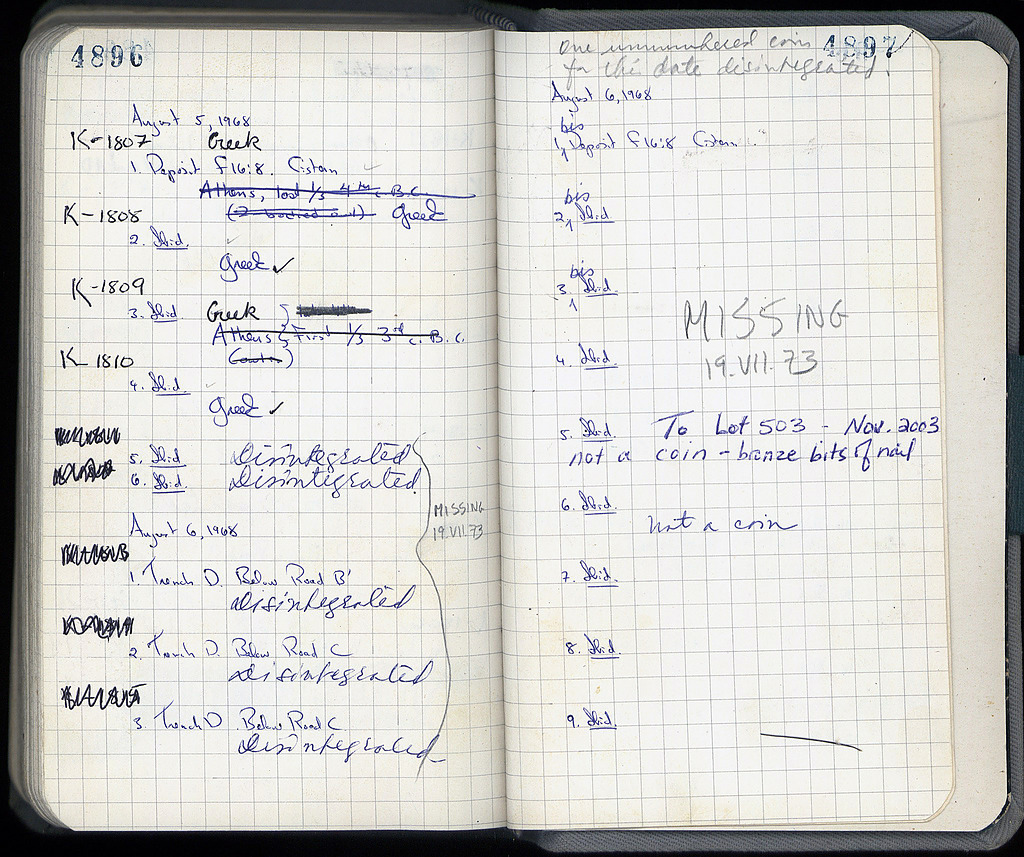 4896
August 5, 1968
K-1807 Greek
1. Deposit F16:8. Cistern
Athens, last 1/3 4th c. B.C.
K-1808 Greek
2. Ibid.
Greek ✓
K-1809
3. Ibid. Greek
Athens; First 1/3 3rd c. B.C.
K-1810
4. Ibid.
Greek ✓
5. Ibid. disintegrated
6. Ibid. disintegrated
MISSING
19.VII.73
August 6, 1968
1. Trench D. Below Road B'
disintegrated
2. Trench D. Below Road C
disintegrated
3. Trench D. Below Road C
disintegrated
one unnumbered coin 4897
for this date disintegrated.
August 6, 1968
bis
1. Deposit F16:8 Cistern
bis
2. Ibid.
bis
3. Ibid.
MISSING
19.VII.73
4. Ibid.
5. Ibid. To Lot 503 - Nov. 2003
not a coin - bronze bits of nail
6. Ibid.
Not a coin
7. Ibid.
8. Ibid.
9. Ibid.